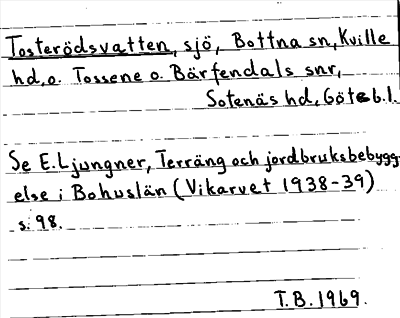 Tosterödsvatten, sjö, Bottna sn, Kville
hd, o. Tossene o. Bärfendals snr,
Sotenäs hd, Göteb. l.
Se E. Ljungner, Terräng och jordbruksbebygg-
else i Bohuslän (Vikarvet 1938-39)
s. 98.
T.B. 1969.